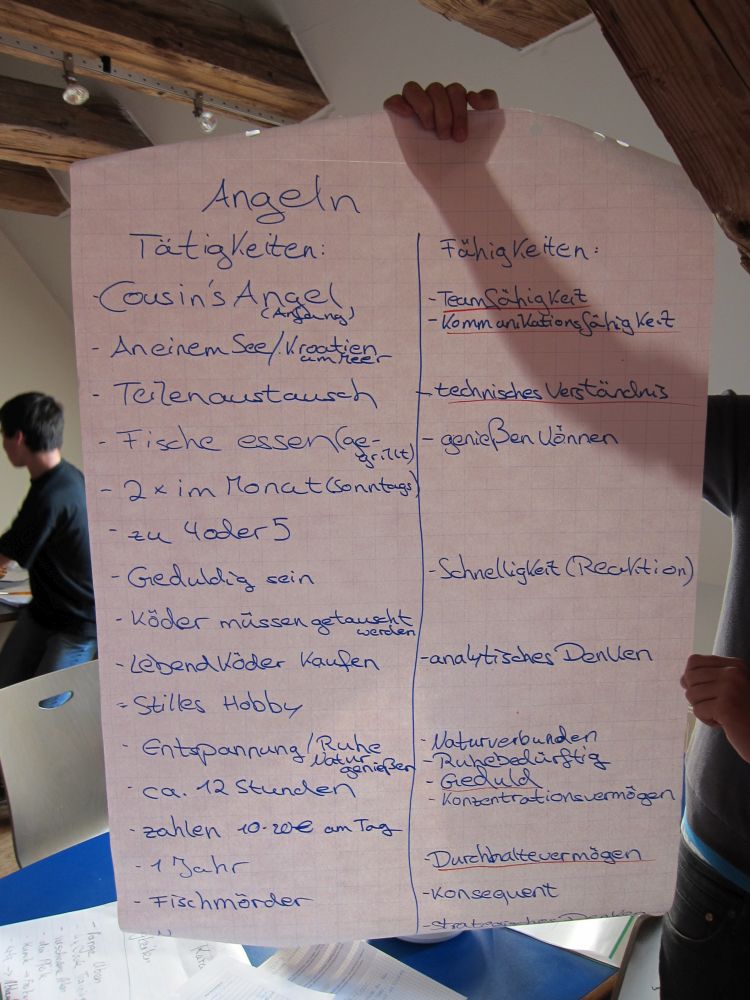 Angeln
Tätigkeiten:
- Cousin's Angel
(Anfang)
- An einem See/Kroatien
am Meer
- Teilenaustausch
- Fische essen (ge-
grillt)
- 2 x im Monat (Sonntags)
- zu 4 oder 5
- Geduldig sein
- Köder müssen getauscht
werden
- Lebendköder kaufen
- Stilles Hobby
- Entspannung/Ruhe
Natur
genießen
- ca. 12 Stunden
- zahlen 10-20€ am Tag
- 1 Jahr
- Fischmörder
Fähigkeiten:
- Teamfähigkeit
- Kommunikationsfähigkeit
- technisches Verständnis
- genießen können
- Schnelligkeit (Reaktion)
- analytisches Denken
- Naturverbunden
- Ruhebedürftig
- Geduld
- Konzentrationsvermögen
- Durchhaltevermögen
- Konsequent
- strategisches Denken